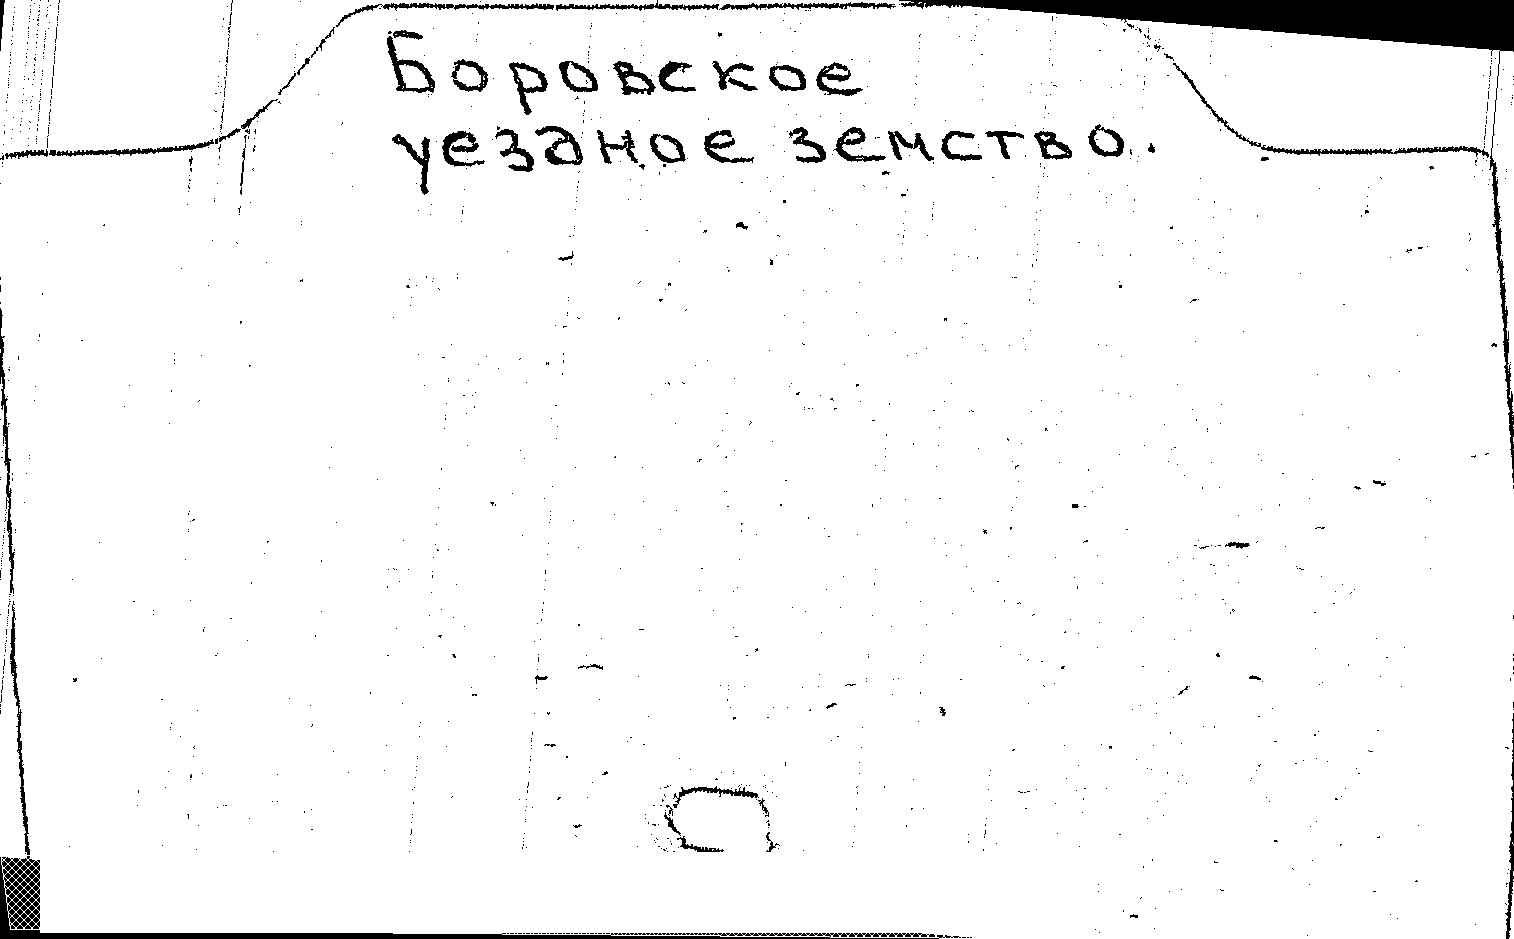 Боровское
уездное земство.